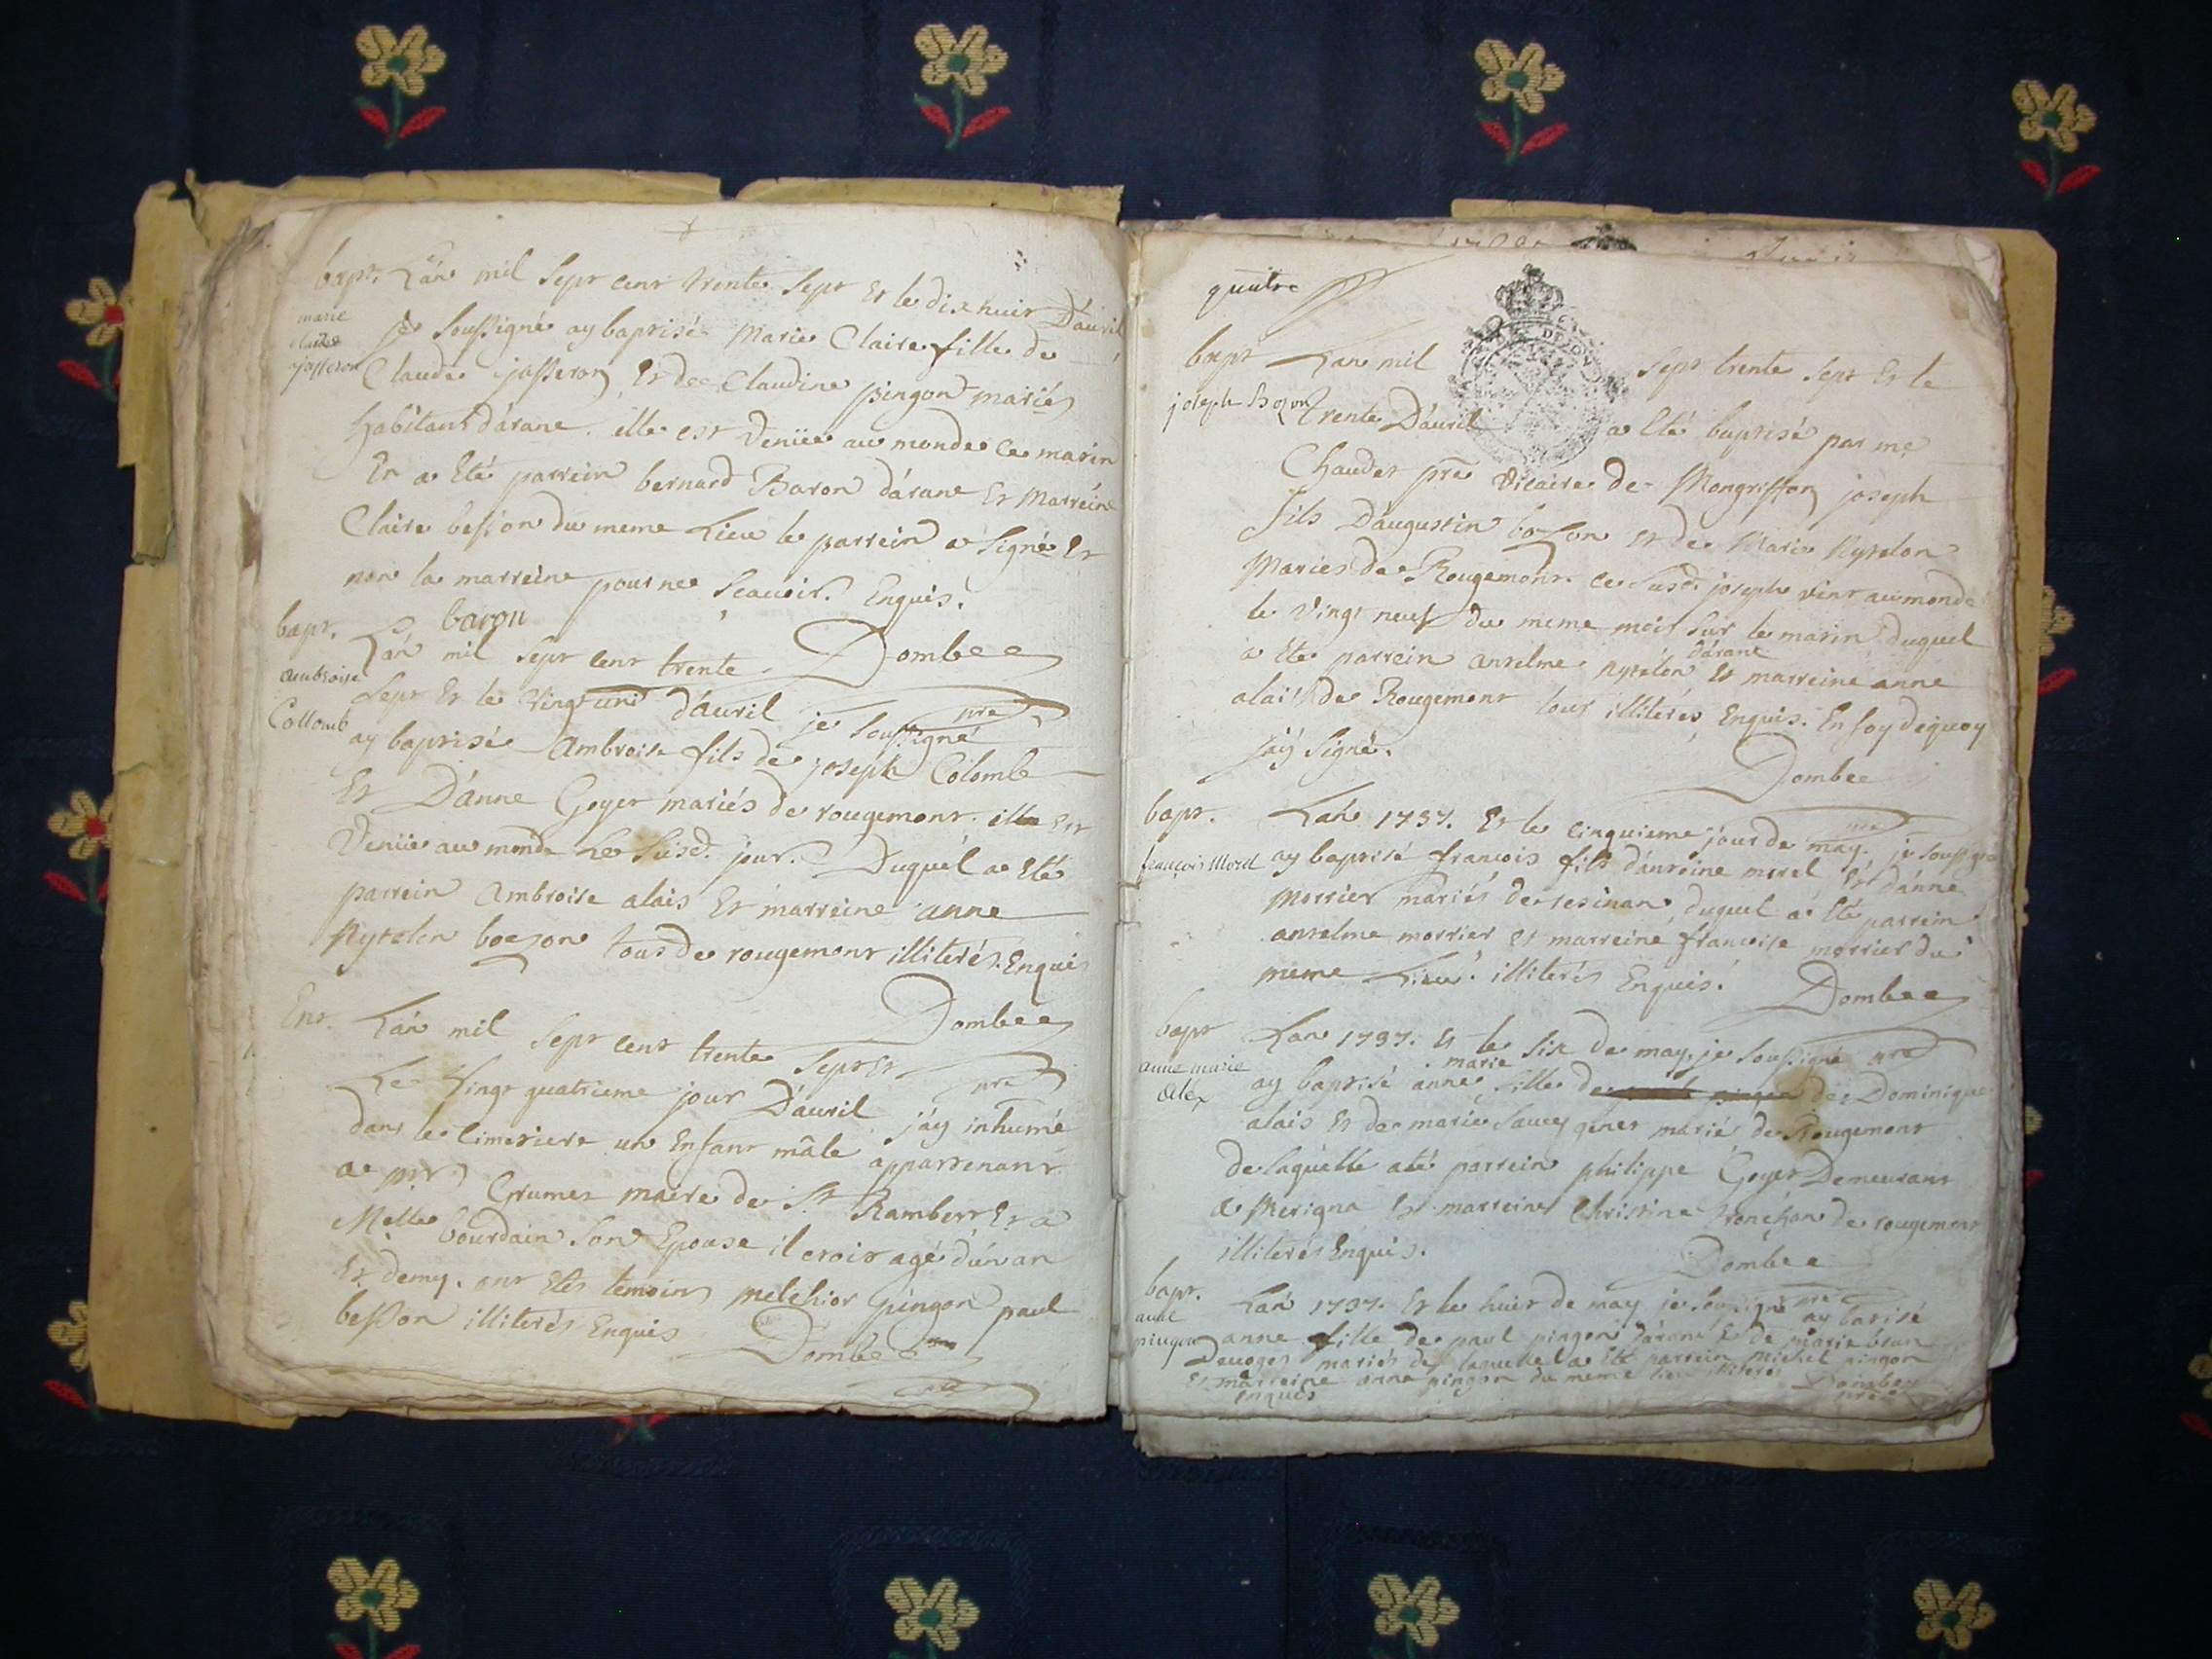 bapt. L'an mil sept cent trente sept et le dix huit D'avril
marie
claire
jasseron
Je soussigné ay baptisé Marie Claire fille de
Claude jasseron et de Claudine pingon mariés
habitant d'arane. elle est venüe au monde ce matin
En a été parrein bernard Baron d'arane et Marreine
Claire besson du meme Lieu le parrein a signé et
non la marreine pour ne sçavoir. Enquis.
baron
Dombee
pre
bapt.
ambroise
Collomb
L'an mil sept cent trente
sept et le vingt un d'avril je soussigné
ay baptisé Ambroise fils de joseph Colomb
Et D'anne Goyet mariés de rougemont. ille est
venüe au monde le susd. jour. Duquel a été
parrein Ambroise alais et marreine anne
Rytelon bozon tous de rougemont illiterés. Enquis
Dombee
pre
Ent. L'an mil sept cent trente sept et
Le vingt quatrieme jour D'avril j'ay inhumé
dans le cimetiere un Enfant mâle appartenant
a Grumet maire de St Rambert et a
Melle bourdain son Epouse il etoit agé d'un an
et demy. ont etés temoins melchior pingon paul
besson illiterés Enquis
Dombee
quatre
bapt
joseph Bozon
L'an mil sept trente sept et le
trente D'avril a été baptisé par me
Chaudet pre vicaire de Mongriffon joseph
fils D'augustin bozon et de Marie Rytelon
Mariés de Rougemont. ce susd. joseph vint au monde
le vingt neuf du meme mois sur le matin duquel
a été parrein anselme Rytelon d'arane et marreine anne
alais de Rougemont tous illiterés Enquis. En foy dequoy
j'ay signé.
Dombee
pre
bapt.
françois Morel
L'an 1737. Et le cinquieme jour de may. je soussigné
ay baptisé françois fils d'antoine morel et d'anne
morrier mariés de resinan duquel a été parrein
anselme morrier et marreine françoise morrier du
meme Lieu. illiterés Enquis.
Dombee
pre
bapt
anne marie
alex
L'an 1737. et le six de may. je soussigné
ay baptisé anne marie fille de de Dominique
alais et de marie mariés de Rougemont
de laquelle a été parrein philippe Goyet Demeurant
a Merigna et marreine Christine de rougemont
illiterés Enquis.
Dombee
pre
bapt.
anne
pingon
L'an 1737. Et le huit de may je soussigné ay batisé
anne fille de paul pingon d'arane et de marie brun
Devoges mariés de laquelle a été parrein michel pingon
Et marreine anne pingon du meme lieu illiterés
enquis
Dombee
pre